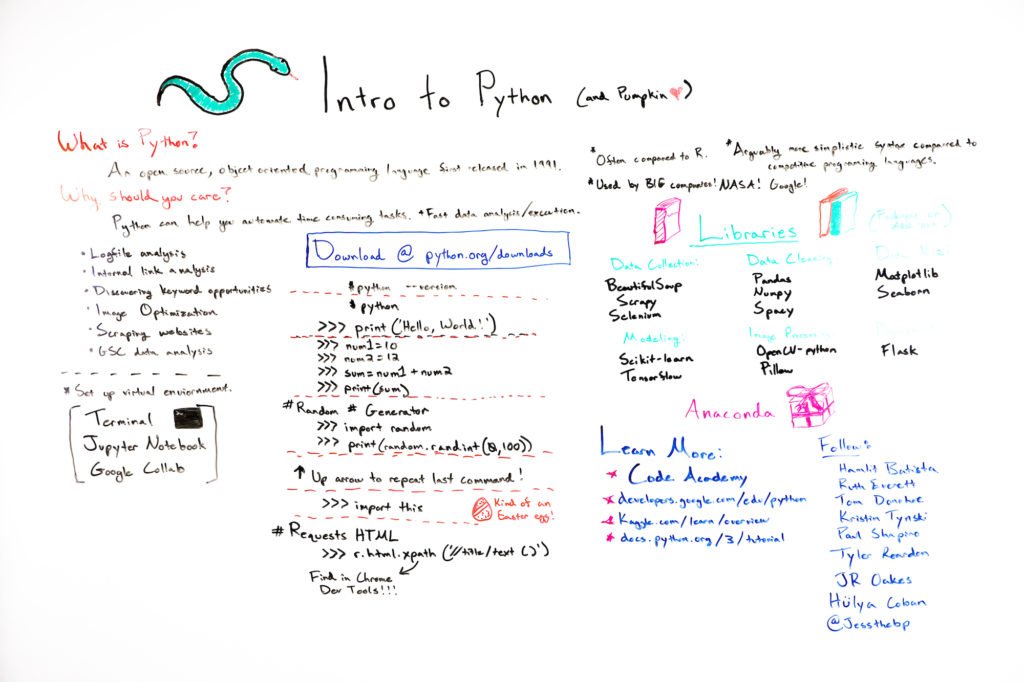 Intro to Python (and Pumpkin)
What is Python?
An open source, object oriented programming language first released in 1991.
Why should you care?
Python can help you automate time consuming tasks. * Fast data analysis/execution.
• Logfile analysis
• Internal link analysis
• Discovering keyword opportunities
• Image Optimization
• Scraping websites
• GSC data analysis
* Set up virtual enviornment.
Terminal
Jupyter Notebook
Google Collab
Download @ python.org/downloads
$ python --version
$ python
>>> print ('Hello, World!')
>>> num1=10
>>> num2=12
>>> sum=num1 + num2
>>> print(sum)
# Random # Generator
>>> import random
>>> print(random.randint(0,100))
↑ Up arrow to repeat last command!
>>> import this
Kind of an
Easter egg!
# Requests HTML
>>> r.html.xpath ('//title/text ()')
Find in Chrome
Dev Tools!!!
* Often compared to R.
* Arguably more simplistic syntax compared to
competitive programing languages.
* Used by BIG companies! NASA! Google!
Libraries
Data Collection:
BeautifulSoup
Scrapy
Selenium
Data Cleaning
Pandas
Numpy
Spacy
Data Viz
Matplotlib
Seaborn
Modeling:
Scikit-learn
Tensorflow
Image
OpenCV-python
Pillow
Flask
Anaconda
Learn More:
* Code Academy
* developers.google.com/edu/python
* Kaggle.com/learn/overview
* docs.python.org/3/tutorial
Follow:
Hamlet Batista
Ruth Everett
Tom Donohue
Kristin Tynski
Paul Shapiro
Tyler Reardon
JR Oakes
Hülya Coban
@Jessthebp